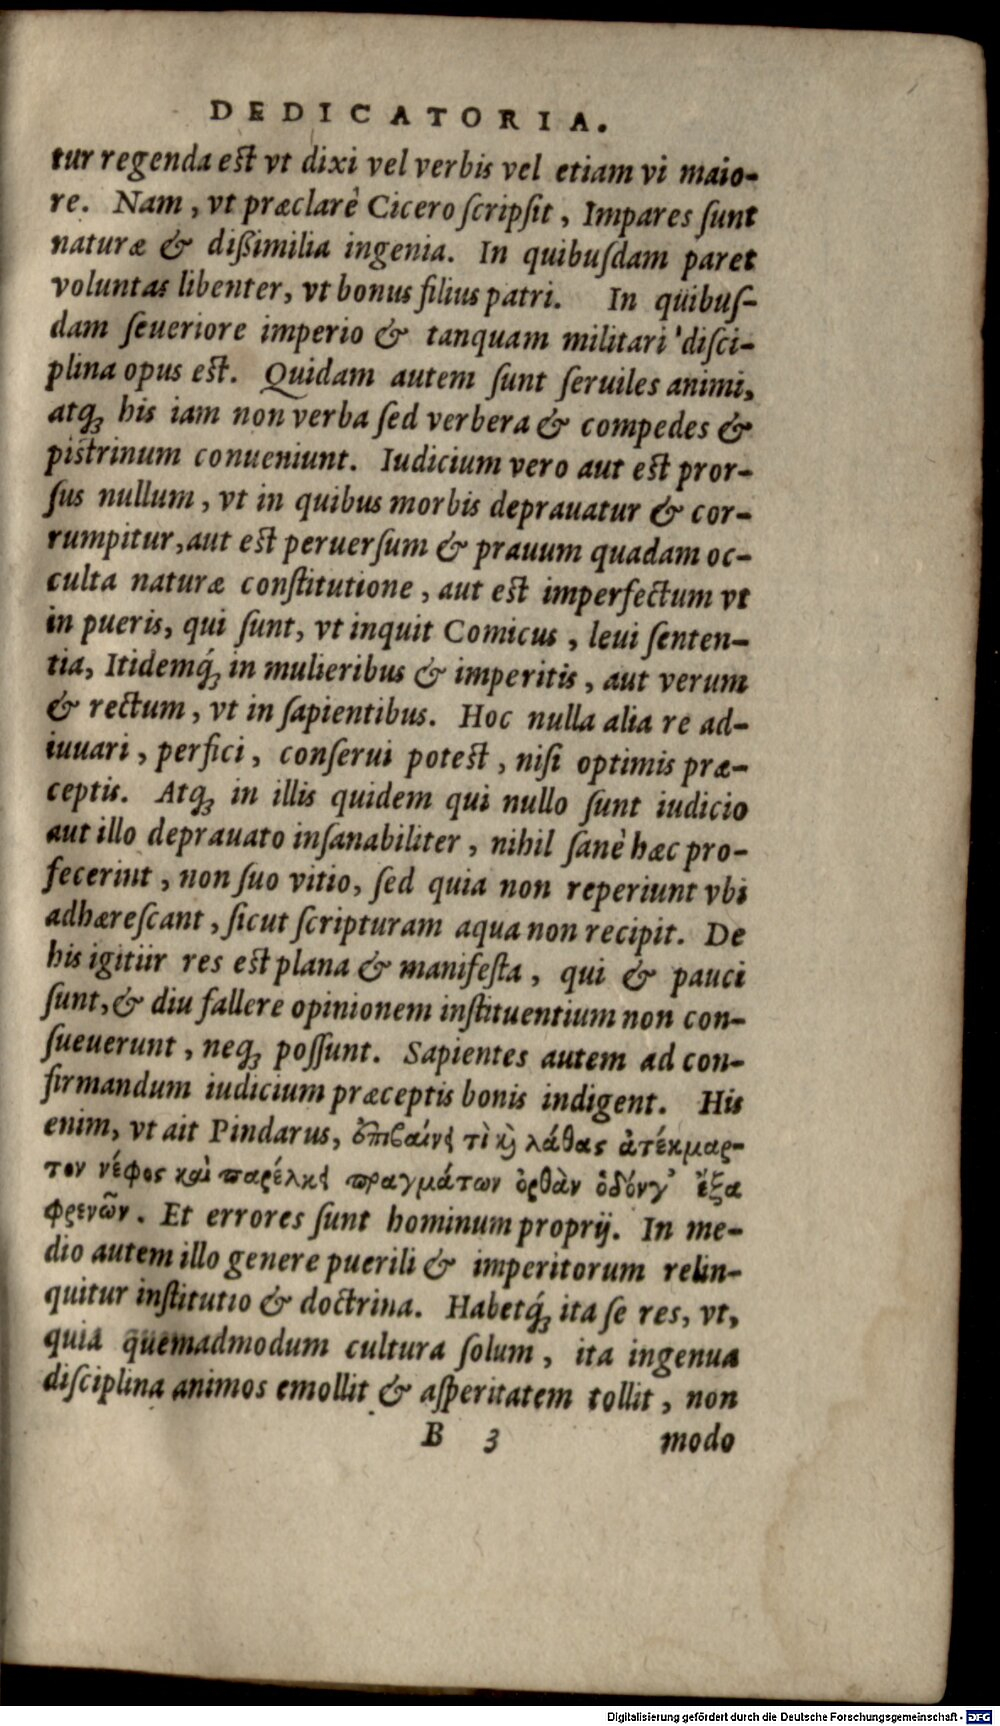 DEDICATORIA.
tur regenda est vt dixi vel verbis vel etiam vi maio-
re. Nam, vt præclarè Cicero ſcripſit, Impares ſunt
naturæ & dißimilia ingenia. In quibuſdam paret
voluntas libenter, vt bonus filius patri. In quibuſ-
dam ſeueriore imperio & tanquam militari diſci-
plina opus est. Quidam autem ſunt ſeruiles animi,
atqꝫ his iam non verba ſed verbera & compedes &
pistrinum conueniunt. Iudicium vero aut est pror-
ſus nullum, vt in quibus morbis deprauatur & cor-
rumpitur, aut est peruerſum & prauum quadam oc-
culta naturæ conſtitutione, aut est imperfectum vt
in pueris, qui ſunt, vt inquit Comicus, leui ſenten-
tia, Itidemq́ꝫ in mulieribus & imperitis, aut verum
& rectum, vt in ſapientibus. Hoc nulla alia re ad-
iuuari, perfici, conſerui potest, niſi optimis præ-
ceptis. Atqꝫ in illis quidem qui nullo ſunt iudicio
aut illo deprauato inſanabiliter, nihil ſanè hæc pro-
fecerint, non ſuo vitio, ſed quia non reperiunt vbi
adhæreſcant, ſicut ſcripturam aqua non recipit. De
his igitur res est plana & manifeſta, qui & pauci
ſunt, & diu fallere opinionem inſtituentium non con-
ſueuerunt, neqꝫ poſſunt. Sapientes autem ad con-
firmandum iudicium præceptis bonis indigent. His
enim, vt ait Pindarus, ἐπιβαίνει τὶ καὶ λάθας ἀτέκμαρ-
τον νέφος καὶ παρέλκει πραγμάτων ὀρθὰν ὁδόνγ' ἔξα
φρενῶν. Et errores ſunt hominum proprij. In me-
dio autem illo genere puerili & imperitorum relin-
quitur inſtitutio & doctrina. Habetq́ꝫ ita ſe res, vt,
quia quemadmodum cultura ſolum, ita ingenua
diſciplina animos emollit & aſperitatem tollit, non
B 3 modo
Digitalisierung gefördert durch die Deutsche Forschungsgemeinschaft - DFG